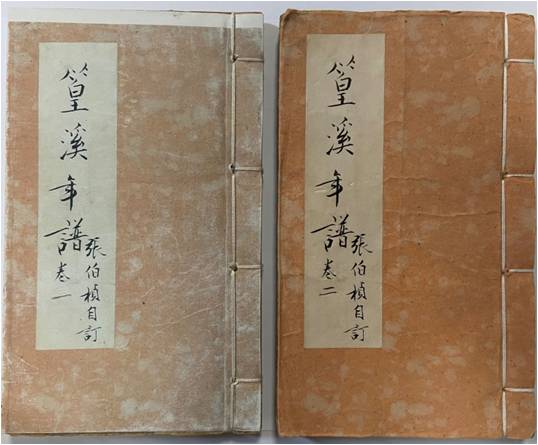 篁溪年譜
張伯楨自訂
卷一
篁溪年譜
張伯楨自訂
卷二